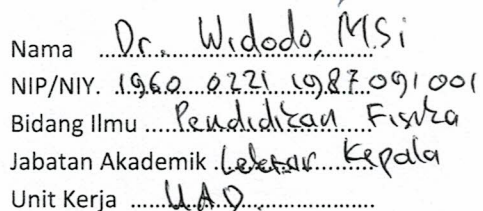 Nama Dr. Widodo, MSi
NIP/NIY. 1960 0221 1987 091 001
Bidang Ilmu Pendidikan Fisika
Jabatan Akademik Lektor Kepala
Unit Kerja UAD.